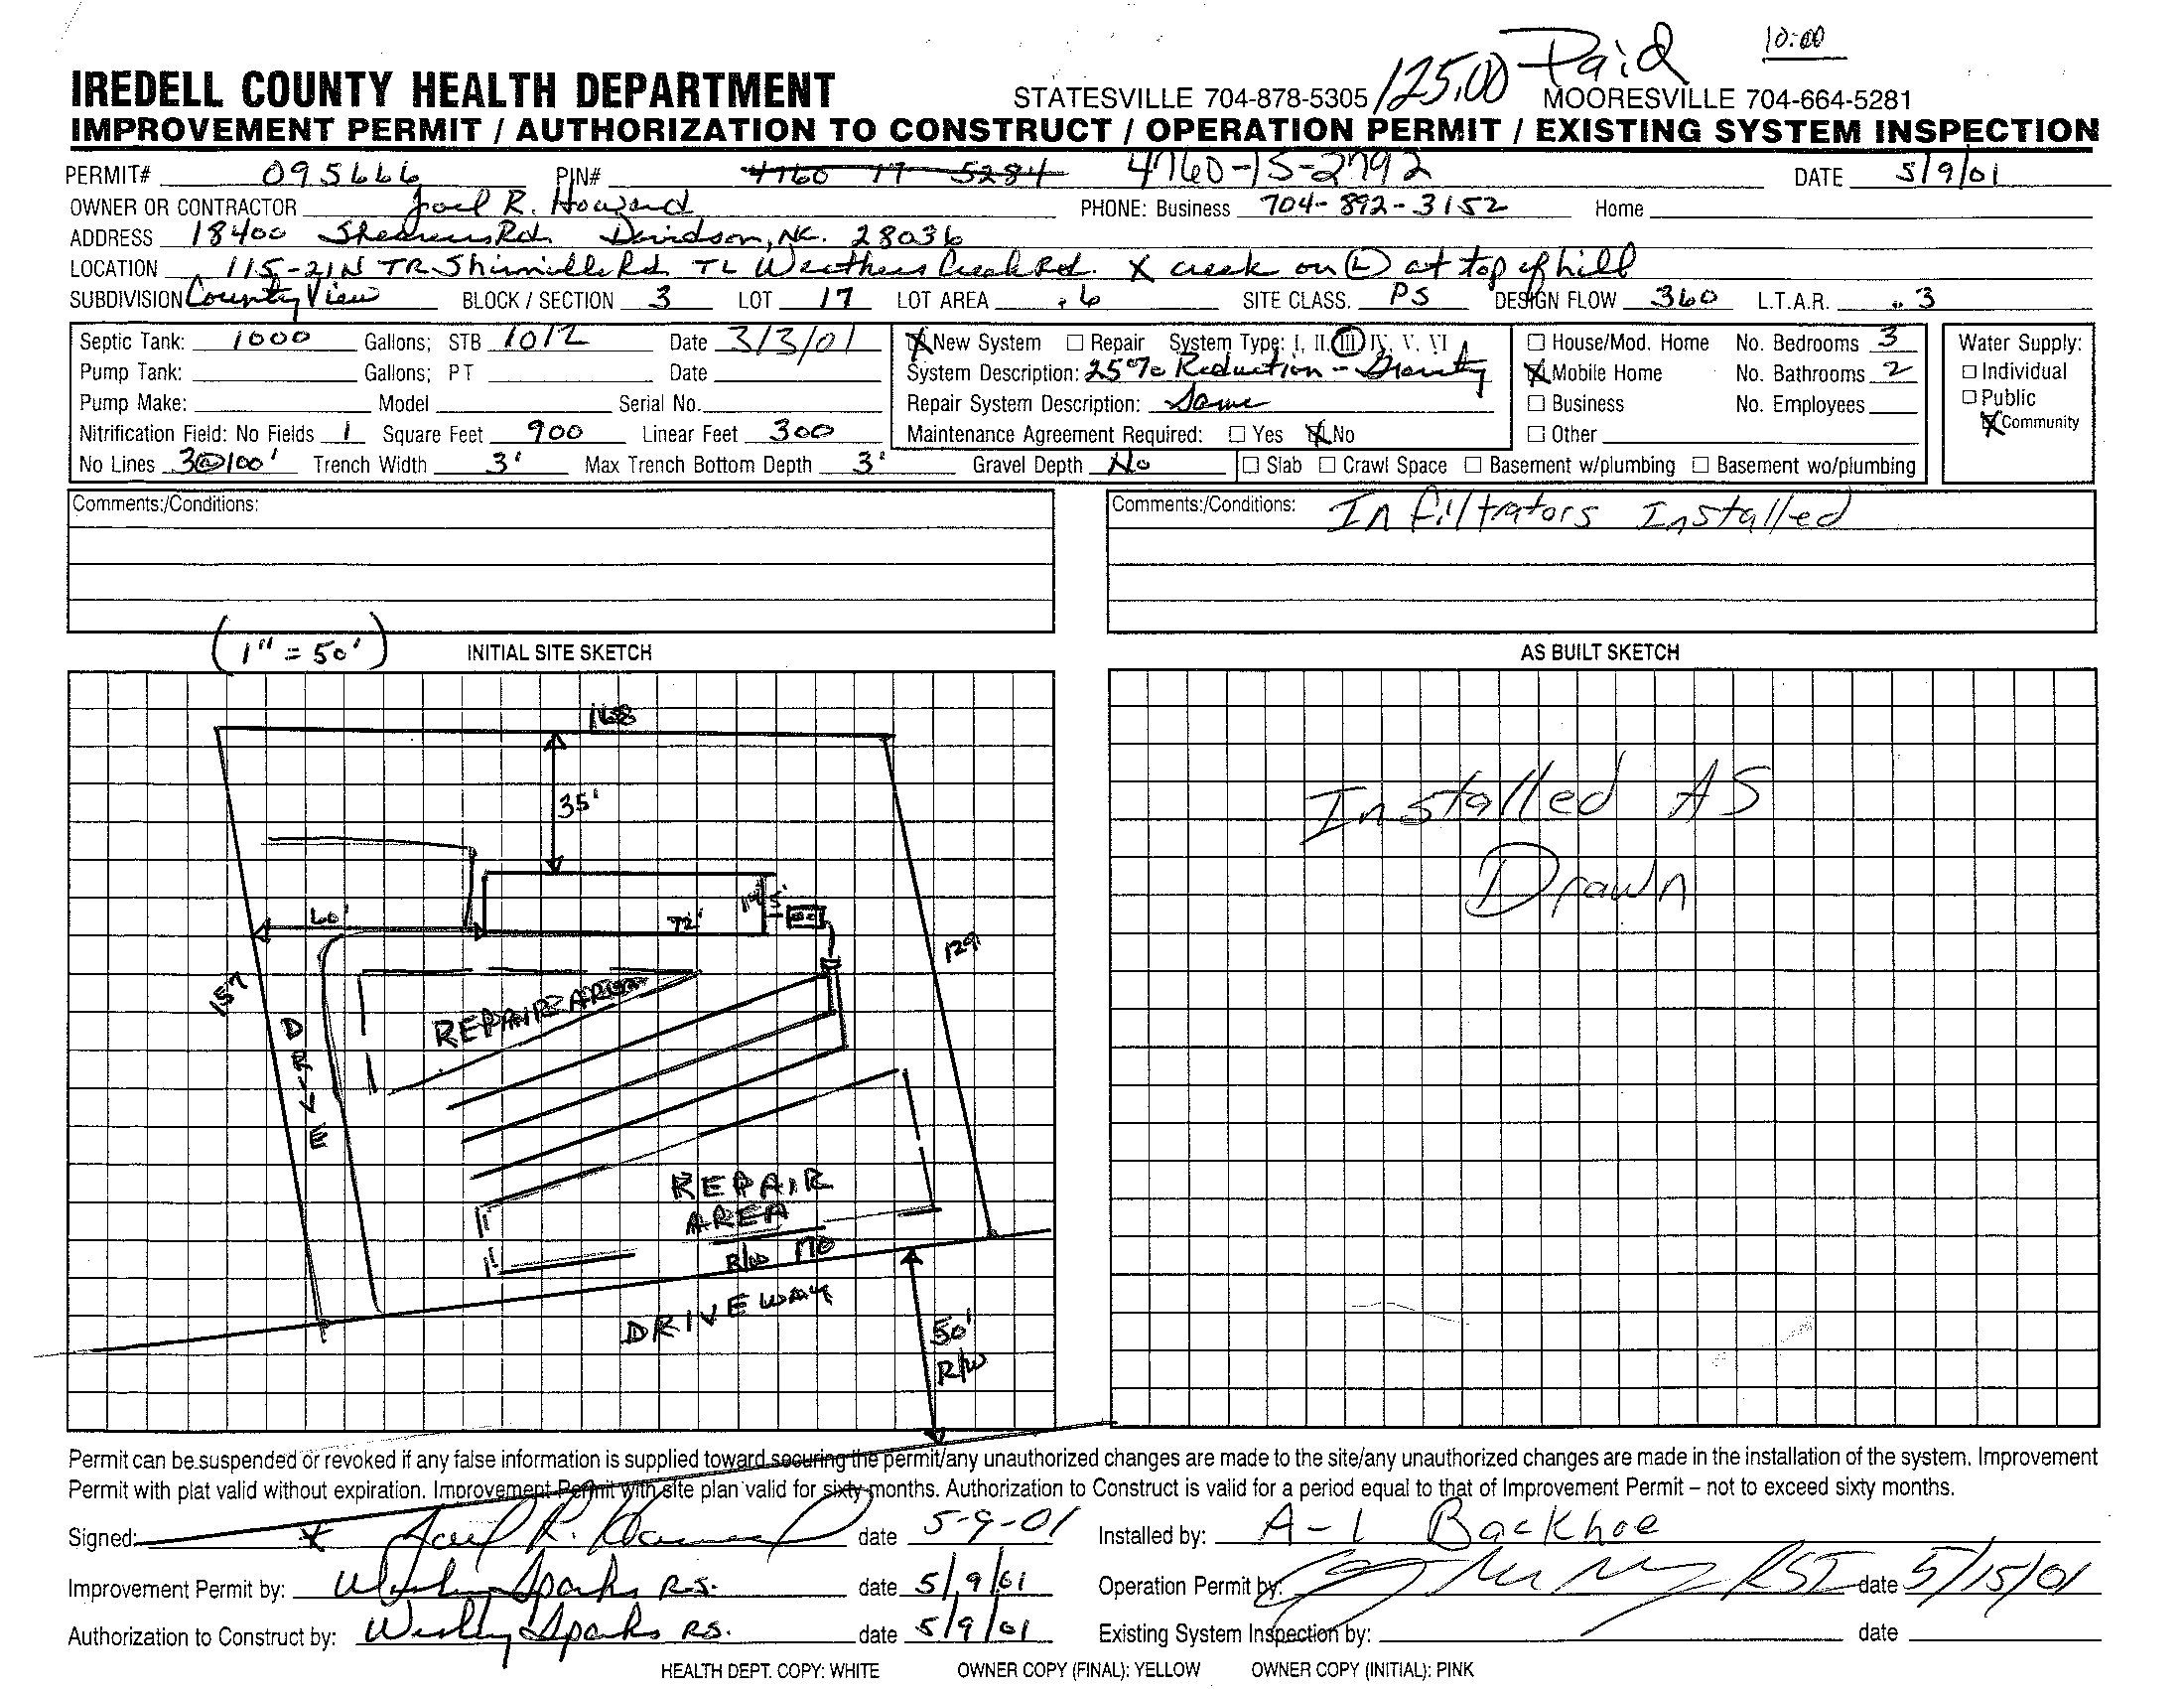 125.00 Paid 10:00
IREDELL COUNTY HEALTH DEPARTMENT STATESVILLE 704-878-5305 MOORESVILLE 704-664-5281
IMPROVEMENT PERMIT / AUTHORIZATION TO CONSTRUCT / OPERATION PERMIT / EXISTING SYSTEM INSPECTION
PERMIT# 095666 PIN# 4760 17 5284 4760-15-2792 DATE 5/9/01
OWNER OR CONTRACTOR Joel R. Howard PHONE: Business 704-892-3152 Home
ADDRESS 18400 Shearers Rd. Davidson, NC. 28036
LOCATION 115-21N TR Rd TL Weathers Creek Rd. X creek on (L) at top of hill
SUBDIVISION County View BLOCK / SECTION 3 LOT 17 LOT AREA .6 SITE CLASS. PS DESIGN FLOW 360 L.T.A.R. .3
Septic Tank: 1000 Gallons; STB 1012 Date 3/3/01 X New System □ Repair System Type: I, II, III, IV, V, VI □ House/Mod. Home No. Bedrooms 3 Water Supply:
Pump Tank: Gallons; PT Date System Description: 25% Reduction - Gravity X Mobile Home No. Bathrooms 2 □ Individual
Pump Make: Model Serial No. Repair System Description: Same □ Business No. Employees □ Public
Nitrification Field: No Fields 1 Square Feet 900 Linear Feet 300 Maintenance Agreement Required: □ Yes X No □ Other X Community
No Lines 3@100' Trench Width 3' Max Trench Bottom Depth 3' Gravel Depth No □ Slab □ Crawl Space □ Basement w/plumbing □ Basement wo/plumbing
Comments:/Conditions: Comments:/Conditions: Infiltrators Installed
(1" = 50') INITIAL SITE SKETCH AS BUILT SKETCH
168
35'
Installed AS
Drawn
14'
5'
60'
72'
129
157
REPAIR AREA
DRIVE
REPAIR
AREA
R/W 170
DRIVEWAY
50'
R/W
Permit can be suspended or revoked if any false information is supplied toward securing the permit/any unauthorized changes are made to the site/any unauthorized changes are made in the installation of the system. Improvement
Permit with plat valid without expiration. Improvement Permit with site plan valid for sixty months. Authorization to Construct is valid for a period equal to that of Improvement Permit – not to exceed sixty months.
Signed: * Joel R. Howard date 5-9-01 Installed by: A-1 Backhoe
Improvement Permit by: Wesley Sparks R.S. date 5/9/01 Operation Permit by: RSI date 5/15/01
Authorization to Construct by: Wesley Sparks RS. date 5/9/01 Existing System Inspection by: date
HEALTH DEPT. COPY: WHITE OWNER COPY (FINAL): YELLOW OWNER COPY (INITIAL): PINK